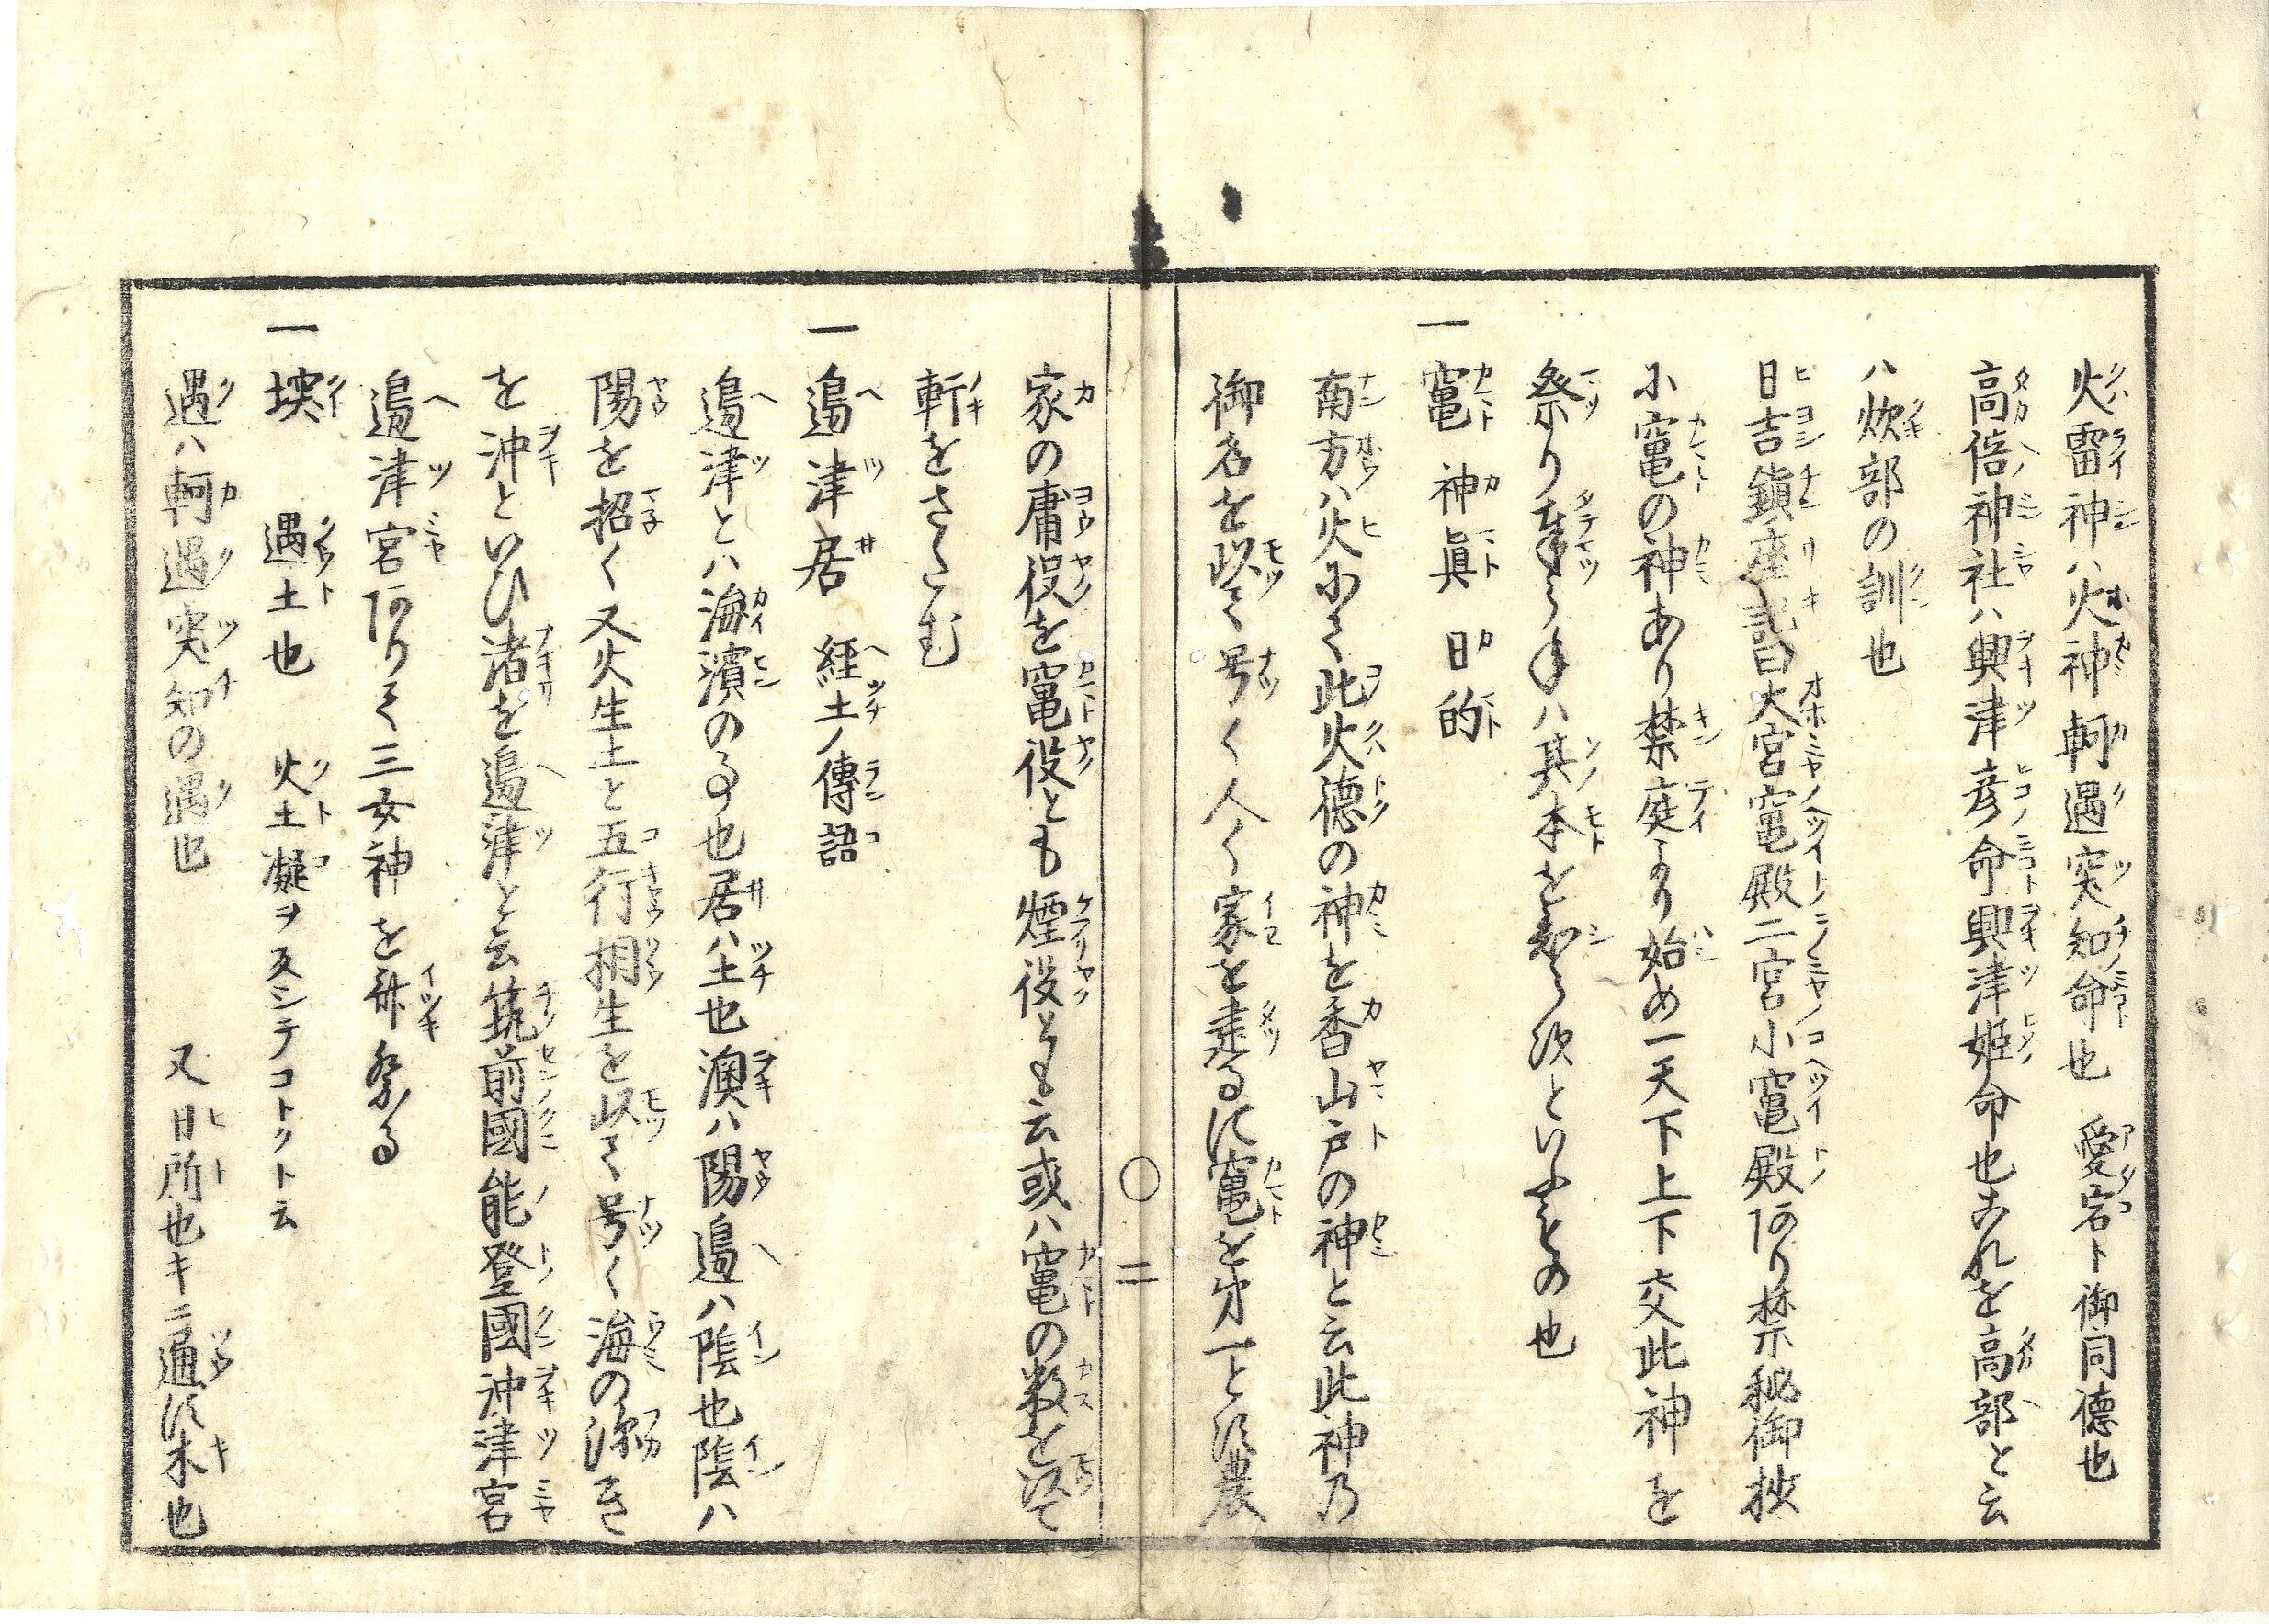 火雷神ハ火神軻遇突知命也 愛宕ト御同徳也
高倍神社ハ興津彦命興津姫命也あれを高部と云
ハ炊部の訓也
日吉鎮座記曰大宮竃殿二宮小竃殿あり禁秘御抄
小竃の神あり禁庭より始め一天下上下交此神を
祭り奉らる年ハ其本を知ら須といふもの也
一 竃 神眞 日的
南方ハ火にて此火徳の神を香山戸の神と云此神乃
御名を以て号く人々家を建るに竃を第一とす農
〇 二
家の庸役を竃役とも煙役とも云或ハ竃の数を以て
軒をさたむ
一 邉津居 經土ノ傳語
邉津とハ海濱の事也居ハ土也澳ハ陽邉ハ陰也陰ハ
陽を招く又火生土と五行相生を以て号く海の深き
を沖といひ渚を邉津と云筑前國能登國沖津宮
邉津宮ありて三女神を斎祭る
一 墺 遇土也 火土凝ヲ反シテコトクト云
遇ハ軻遇突知の遇也 又日所也キニ通す木也